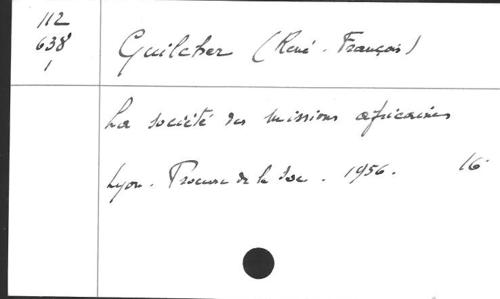 112
638
1
Guilcher (René-François)
La société des missions africaines
Lyon. Procure de la Soc. 1956. 16°